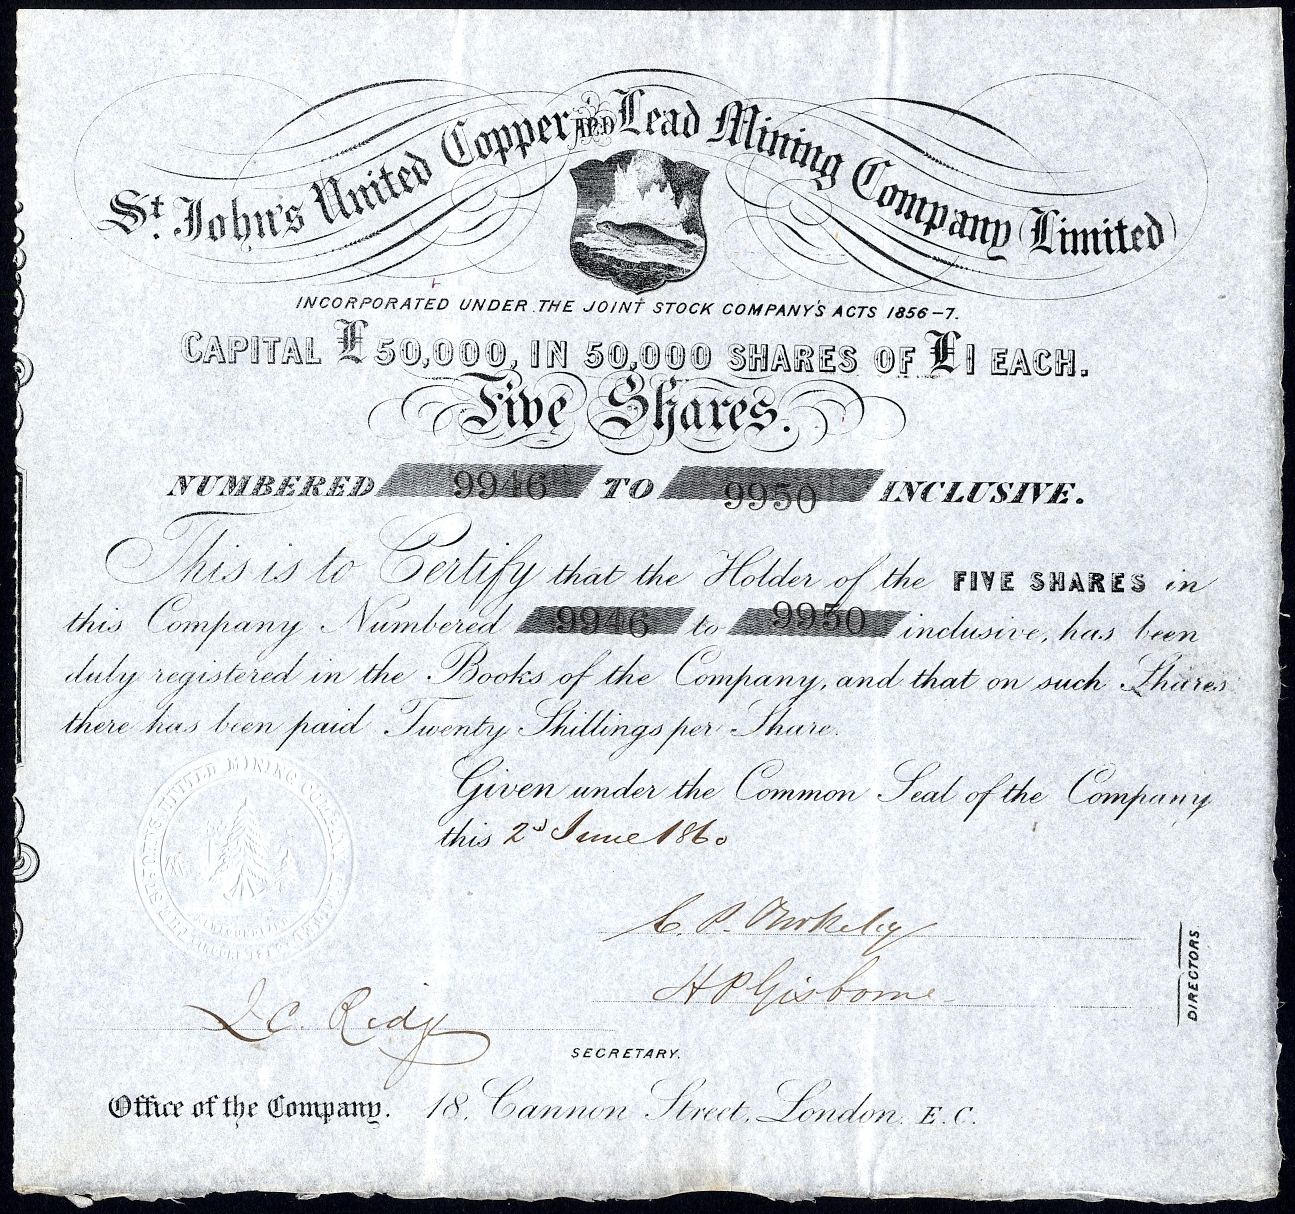 St. John's United Copper AND Lead Mining Company (Limited)
INCORPORATED UNDER THE JOINT STOCK COMPANY'S ACTS 1856-7.
CAPITAL £50,000, IN 50,000 SHARES OF £1 EACH.
Five Shares.
NUMBERED 9946 TO 9950 INCLUSIVE.
This is to Certify that the Holder of the FIVE SHARES in
this Company Numbered 9946 to 9950 inclusive, has been
duly registered in the Books of the Company, and that on such Shares
there has been paid Twenty Shillings per Share.
Given under the Common Seal of the Company
this 2d June 1860
UNITED MINING COMPANY
C. P.
H P Gisborne
DIRECTORS
J. C. Ridge
SECRETARY.
Office of the Company. 18, Cannon Street, London, E.C.